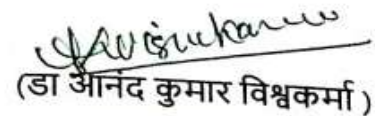 (डा आनंद कुमार विश्वकर्मा )